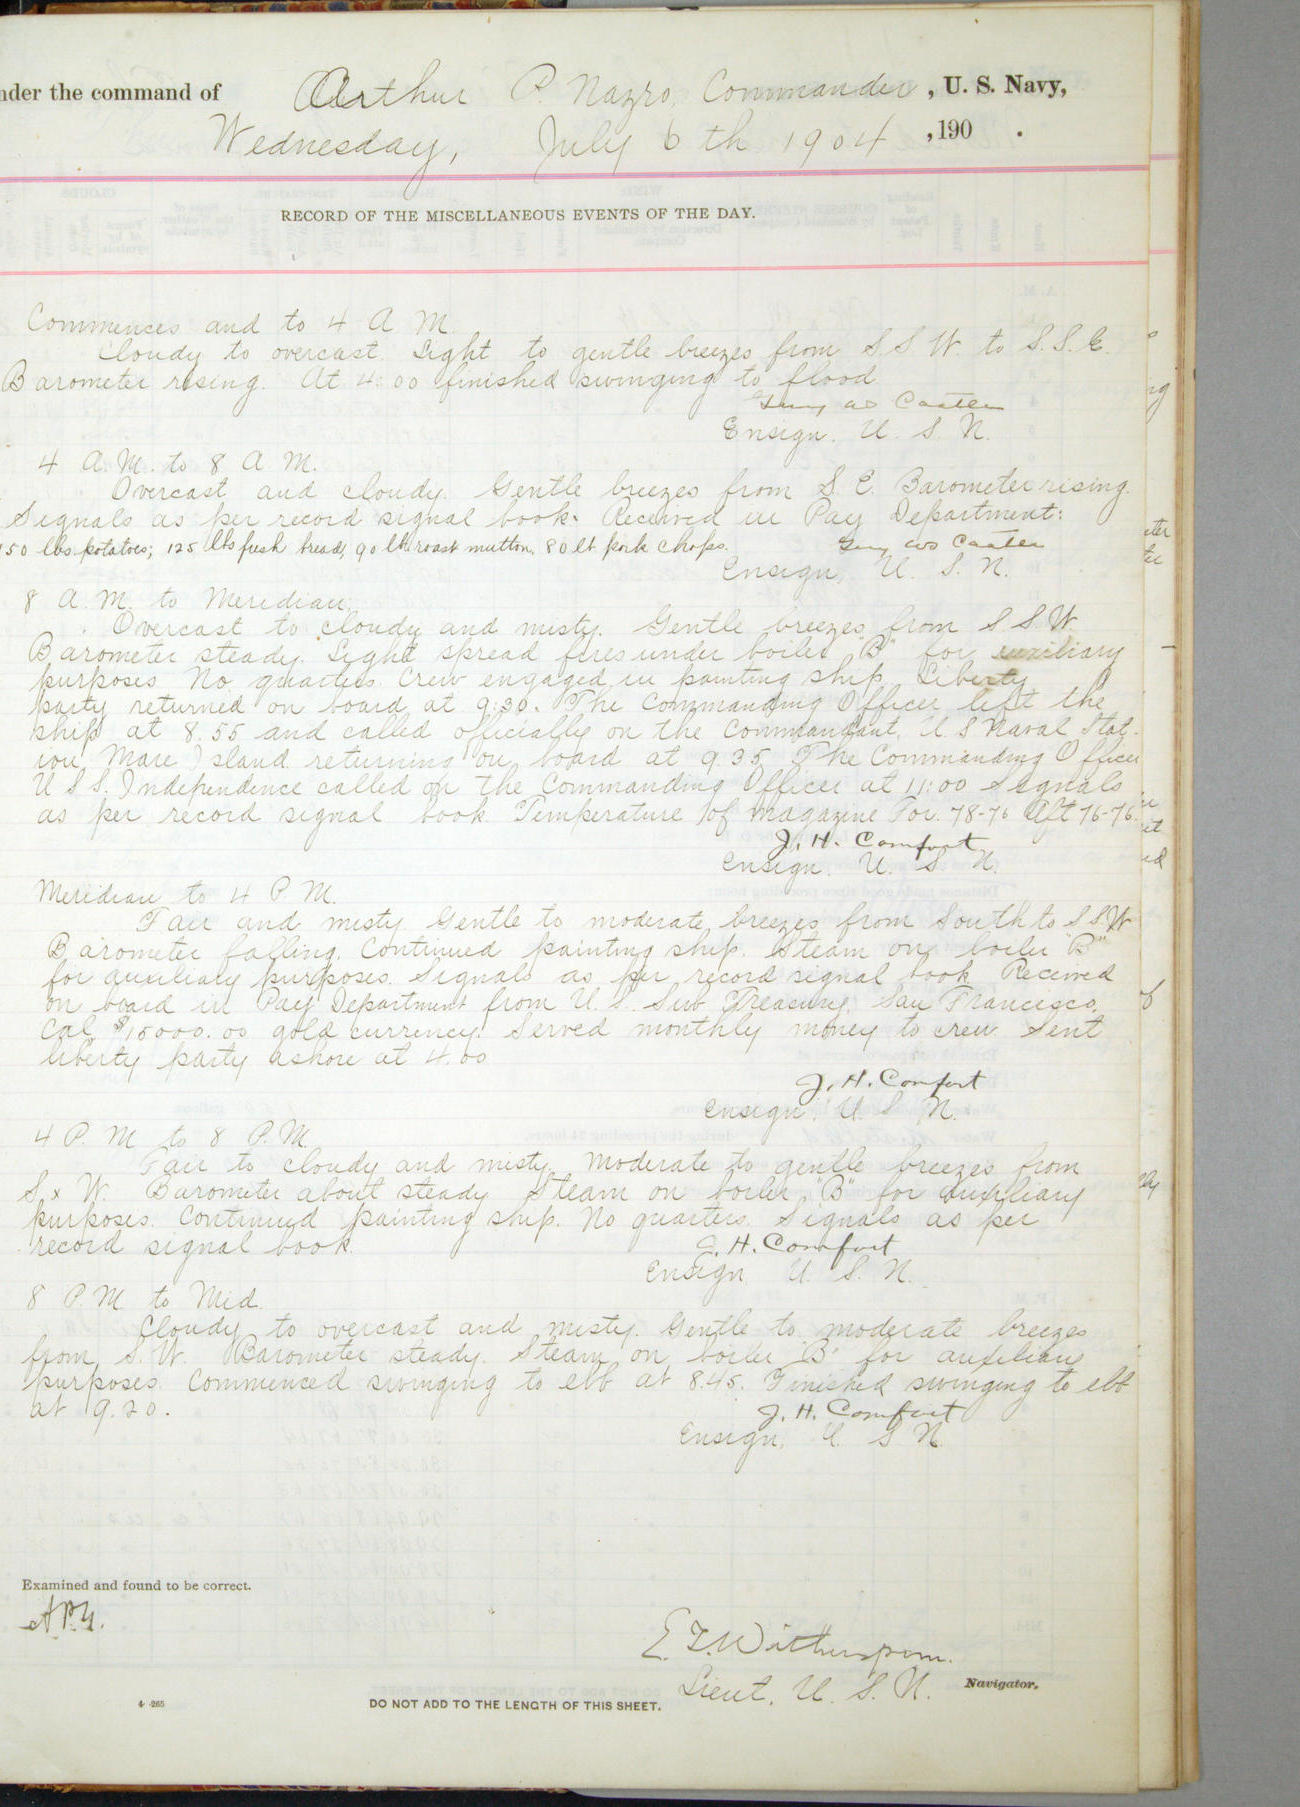 nder the command of Arthur P. Nazro, Commander, U. S. Navy,
Wednesday, July 6th 1904, 190 .
RECORD OF THE MISCELLANEOUS EVENTS OF THE DAY.
Commences and to 4 A M
Cloudy to overcast. Light to gentle breezes from S.S.W. to S.S.E.
Barometer rising. At 4:00 finished swinging to flood
Ensign. U. S. N.
4 A.M. to 8 A M.
Overcast and cloudy. Gentle breezes from S. E. Barometer rising.
Signals as per record signal book. Received in Pay Department:
150 lbs. potatoes; 125 lbs fresh bread, 90 lb roast mutton, 80 lb pork chops.
Ensign, U. S. N.
8 A.M. to Meridian.
Overcast to cloudy and misty. Gentle breezes from S S.W
Barometer steady. Light spread fires under boiler "B" for auxiliary
purposes No quarters. Crew engaged in painting ship. Liberty
party returned on board at 9:30. The Commanding Officer left the
ship at 8.55 and called officially on the Commandant, U. S Naval Stat-
ion, Mare Island returning on board at 9.35 The Commanding Officer
U S S. Independence called on the Commanding Officer at 11:00 Signals
as per record signal book Temperature of magazine For. 78-76 Aft 76-76.
J. H. Comfort
Ensign. U. S N.
Meridian to 4 P. M.
Fair and misty Gentle to moderate breezes from South to S S.W
Barometer falling. Continued painting ship. Steam on boiler "B"
for auxiliary purposes. Signals as per record signal book Received
on board in Pay Department from U. S. Sub Treasury, San Francisco,
Cal $15000.00 gold currency. Served monthly money to crew. Sent
liberty party ashore at 4.00
J. H. Comfort
Ensign. U. S. N.
4 P. M to 8 P.M.
Fair to cloudy and misty Moderate to gentle breezes from
S x W. Barometer about steady Steam on boiler "B" for auxiliary
purposes. Continued painting ship. No quarters. Signals as per
record signal book.
J. H. Comfort
Ensign U. S. N.
8 P.M to Mid.
Cloudy to overcast and misty. Gentle to moderate breezes
from S. W. Barometer steady. Steam on boiler "B" for auxiliary
purposes. Commenced swinging to ebb at 8.45. Finished swinging to ebb
at 9.20.
J. H. Comfort
Ensign, U. S N.
Examined and found to be correct.
E. T. Witherspoon.
Lieut. U. S. N. Navigator.
4—265
DO NOT ADD TO THE LENGTH OF THIS SHEET.